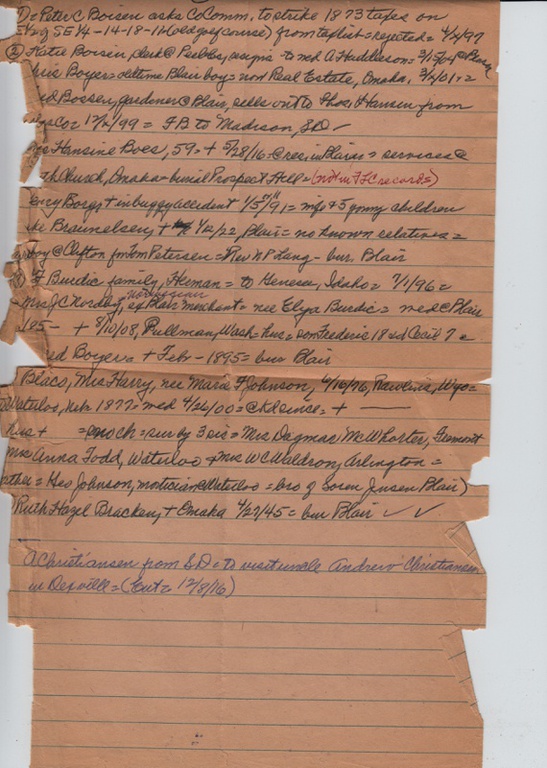 Peter C Boisen asks Co Comm. to strike 1873 taxes on
E½ of SE¼-14-18-11 (old golf course) from taxlist = rejected = 4/4/97
② Katie Boisen, clerk @ Peebles, resigns to wed A Huddleson = 3/
Boyer = oldtime Blair boy = now Real Estate, Omaha, 3/4/01
Bossen, gardener @ Blair, sells out to Thos. Hansen from
Co = 12/2/99 = FB to Madison, SD ✓
Hansine Boes, 59 = + 5/28/16 = @ res in Blair = services @
Church, Omaha = burial Prospect Hill = (not in FC records)
Borgst in buggy accident = mfe & 5 young children
Braunelsen, + 4/2/22, Blair = no known relatives =
@ Clifton fm Tom Petersen = Rev NP Lang - bur. Blair
F Burdic family, Herman = to Genesee, Idaho = 7/1/96 =
Mrs JC Nordby, Norwegian ex Blair merchant = nee Elya Burdic = wed @ Blair
185- + 8/10/08, Pullman, Wash = hus = son Frederic 18 & d Cecil 7 =
Boyer = + Febr - 1895 = bur Blair
Blaco, Mrs Harry, nee Marie F Johnson, 6/16/76, Rawlins, Wyo =
Waterloo, Nebr 1877 = wed 4/26/00 = @ Kd since = + —
hus + = no ch = sur by 3 sis = Mrs Dagmar McWhorter, Fremont
Mrs Anna Todd, Waterloo & Mrs WC Waldron, Arlington =
= Geo Johnson, mortician @ Waterloo = bro of Soren Jensen Blair)
Ruth Hazel Bracken, + Omaha 4/27/45 = bur Blair ✓ ✓
A Christiansen from SD = to visit uncle Andrew Christiansen
in Dexville = (Ent = 12/8/16)